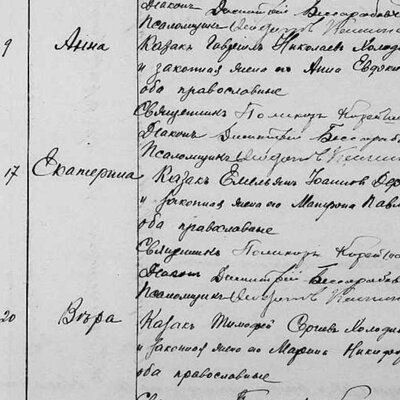 Діаконъ Димитрій Бессарабовъ
Псаломщикъ
9 Анна Казакъ Гавріилъ Николаевъ Холод
и законная жена его Анна Евдок
оба православные
Священникъ Поликарпъ
Діаконъ Димитрій Бессараб
Псаломщикъ
17 Екатерина Казакъ Емельянъ Іоанновъ Дер
и законная жена его Матрона Павл
оба православные
Священникъ Поликарпъ
Діаконъ Димитрій Бессараб
Псаломщикъ
20 Вѣра Казакъ Тимофей Сергіевъ Холод
и законная жена его Марина Никифор
оба православные